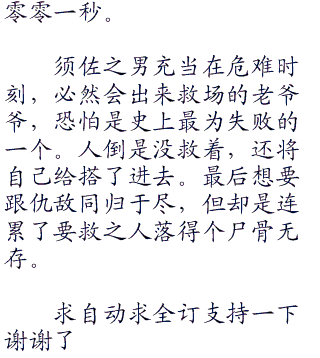 零零一秒。
须佐之男充当在危难时
刻，必然会出来救场的老爷
爷，恐怕是史上最为失败的
一个。人倒是没救着，还将
自己给搭了进去。最后想要
跟仇敌同归于尽，但却是连
累了要救之人落得个尸骨无
存。
求自动求全订支持一下
谢谢了